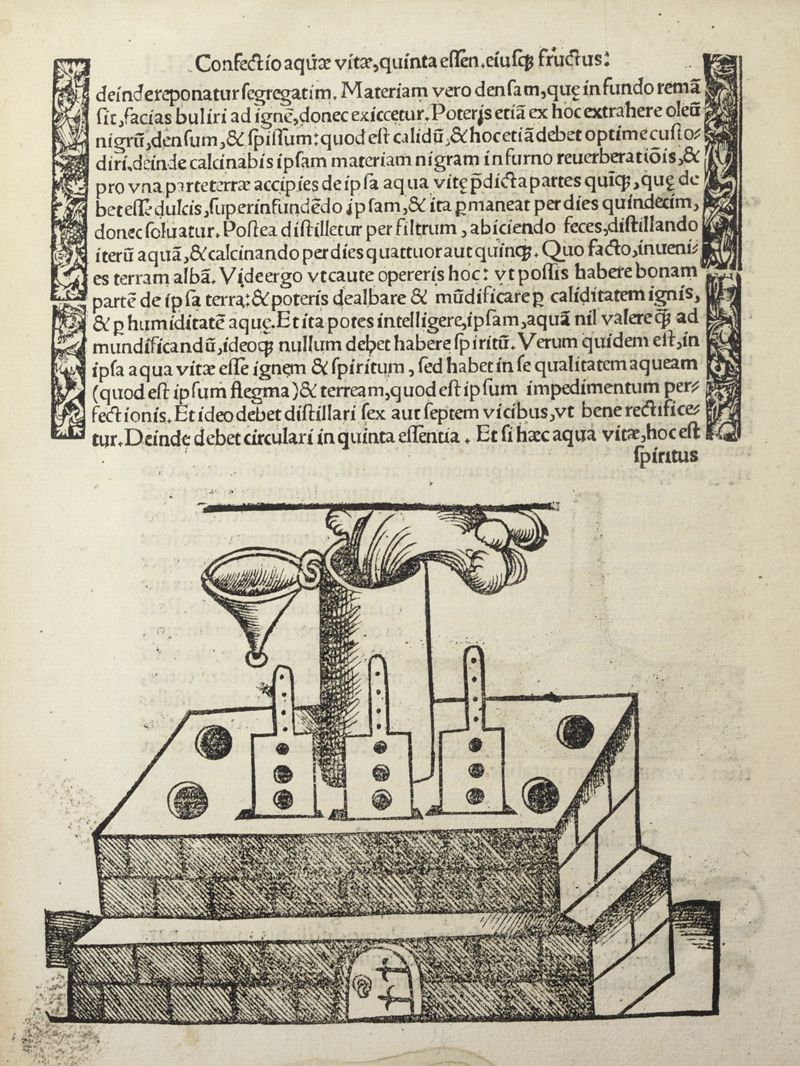 Confectio aquæ vitæ, quinta essen. eiusq́; fructus:
deinde reponatur segregatim. Materiam vero densam, quę in fundo remā
sit, facias buliri ad ignē, donec exiccetur. Poteris etiā ex hoc extrahere oleū
nigrū, densum, & spissum: quod est calidū, & hoc etiā debet optime custo⸗
diri, deinde calcinabis ipsam materiam nigram in furno reuerberatiōis, &
pro vna parte terræ accipies de ipsa aqua vitę p̄dicta partes quīq́;, quę de
bet esse dulcis, superinfundēdo ipsam, & ita ꝑmaneat per dies quindecim,
donec soluatur. Postea distilletur per filtrum, abiciendo feces, distillando
iterū aquā, & calcinando per dies quattuor aut quinq́;. Quo facto, inueni⸗
es terram albā. Vide ergo vt caute opereris hoc: vt possis habere bonam
partē de ipsa terra: & poteris dealbare & mūdificare ꝑ caliditatem ignis,
& ꝑ humiditatē aquę. Et ita potes intelligere, ipsam, aquā nil valere q̄; ad
mundificandū, ideoq́; nullum debet habere spiritū. Verum quidem est, in
ipsa aqua vitæ esse ignem & spiritum, sed habet in se qualitatem aqueam
(quod est ipsum flegma) & terream, quod est ipsum impedimentum per⸗
fectionis. Et ideo debet distillari sex aut septem vicibus, vt bene rectifice⸗
tur. Deinde debet circulari in quinta essentia. Et si hæc aqua vitæ, hoc est
spiritus